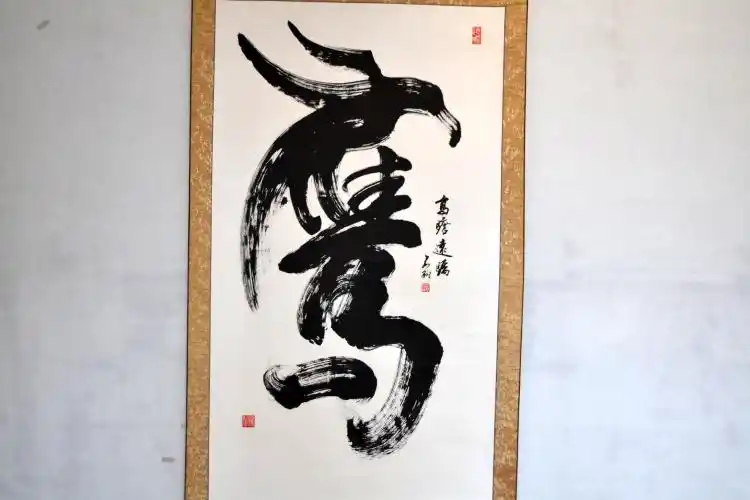 鹰
高瞻遠矚